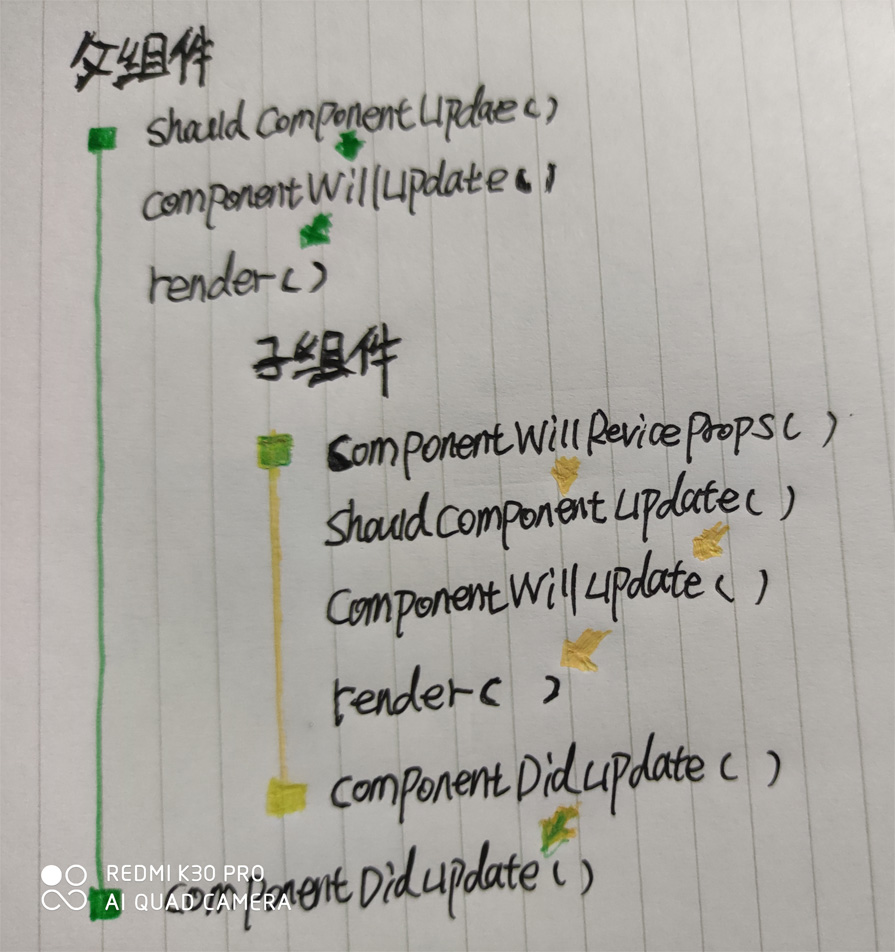 父组件
should componentUpdae()
componentWillUpdate()
render()
子组件
componentWillReviceProps()
shouldcomponentUpdate()
componentWillUpdate()
render()
componentDidUpdate()
componentDidUpdate()
REDMI K30 PRO
AI QUAD CAMERA